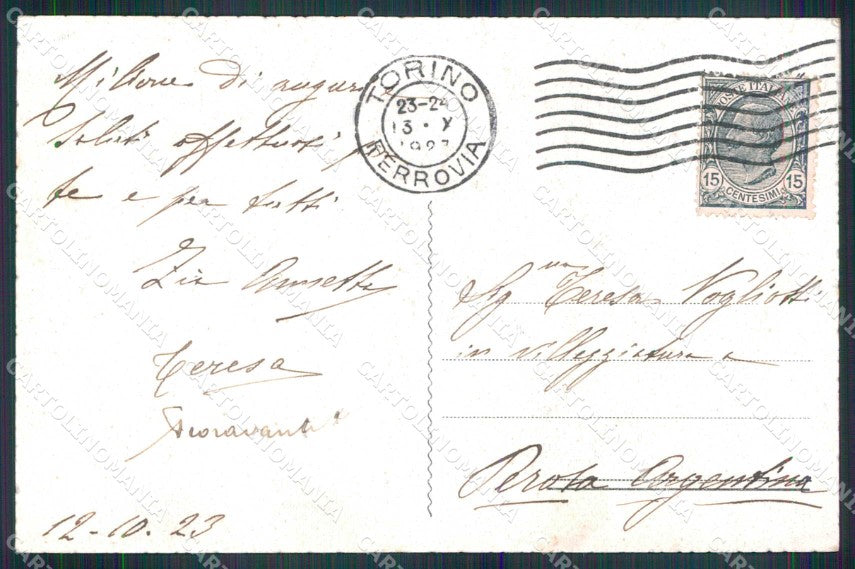 Milione di auguri
Saluti affettuosi
te e per tutti
Zia Annetta
Teresa
Fioravanti
12-10.23
TORINO
23-24
13 · X
1923
FERROVIA
POSTE ITALIANE
15 CENTESIMI 15
Sigᵘᵃ Teresa Vogliotti
in villeggiatura a
Perosa Argentina
CARTOLINOMANIA